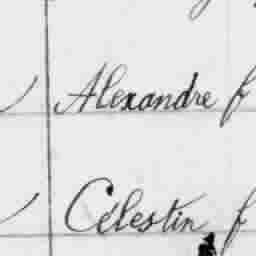 Alexandre f
Célestin f